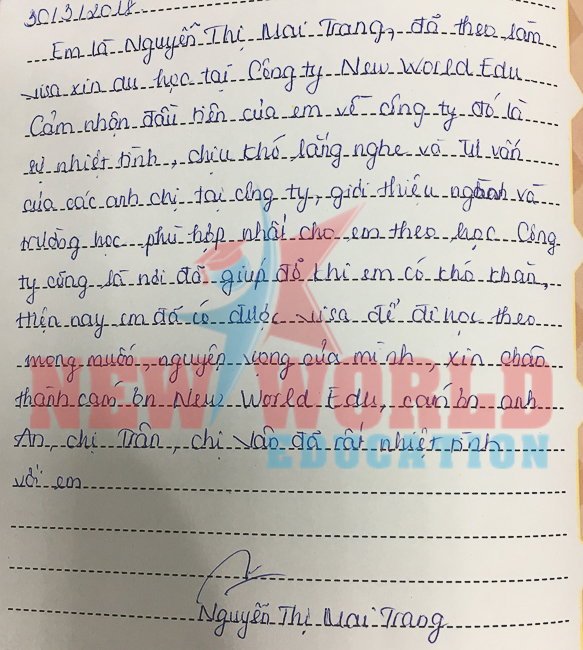 30/3/2018.
Em là Nguyễn Thị Mai Trang, đã theo làm
visa xin du học tại Công ty New World Edu
Cảm nhận đầu tiên của em về công ty đó là
sự nhiệt tình, chịu khó lắng nghe và tư vấn
của các anh chị tại công ty, giới thiệu ngành và
trường học phù hợp nhất cho em theo học. Công
ty cũng là nơi đã giúp đỡ khi em có khó khăn,
hiện nay em đã có được visa để đi học theo
mong muốn, nguyện vọng của mình, xin chân
thành cảm ơn New World Edu, cảm ơn anh
An, chị Trân, chị Vân đã rất nhiệt tình
với em
NEW WORLD
EDUCATION
Nguyễn Thị Mai Trang